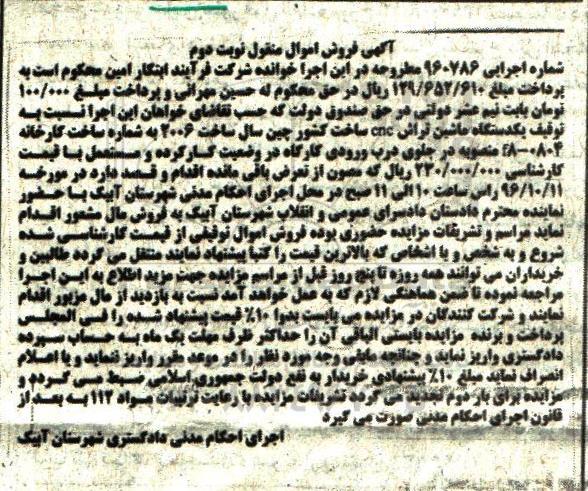 آگهی فروش اموال منقول نوبت دوم
شماره اجرایی ۹۶۰۷۸۶ مطروحه در این اجرا خوانده شرکت فرآیند ابتکار امین محکوم است به
پرداخت مبلغ ۱۳۹/۶۵۲/۶۱۰ ریال در حق محکوم له حسین مهرانی و پرداخت مبلغ ۱۰۰/۰۰۰
تومان بابت نیم عشر دولتی در حق صندوق دولت که حسب تقاضای خواهان این اجرا نسبت به
توقیف یکدستگاه ماشین تراش cnc ساخت کشور چین سال ساخت ۲۰۰۶ به شماره ساخت کارخانه
۴۸-۰۸۰۴ منصوبه در جلوی درب ورودی کارگاه در وضعیت کارکرده و مستعمل با قیمت
کارشناسی ۲۳۰/۰۰۰/۰۰۰ ریال که مصون از تعرض باقی مانده اقدام و قصد دارد در مورخه
۹۶/۱۰/۱۱ راس ساعت ۱۰ الی ۱۱ صبح در محل اجرای احکام مدنی شهرستان آبیک با حضور
نماینده محترم دادستان دادسرای عمومی و انقلاب شهرستان آبیک به فروش مال مشعور اقدام
نماید مراسم و تشریفات مزایده حضوری بوده فروش اموال توقیفی از قیمت کارشناسی شده
شروع و به شخص و یا اشخاصی که بالاترین قیمت را کتبا پیشنهاد نمایند منتقل می گردد طالبین و
خریداران می توانند همه روزه تا پنج روز قبل از مراسم مزایده جهت مزید اطلاع به این اجرا
مراجعه نموده تا ضمن هماهنگی لازم که به عمل خواهد آمد نسبت به بازدید از مال مزبور اقدام
نمایند و شرکت کنندگان در مزایده می بایست بدوا ۱۰٪ قیمت پیشنهاد شده را فی المجلس
پرداخت و برنده مزایده بایستی الباقی آن را حداکثر ظرف مهلت یک ماه به حساب سپرده
دادگستری واریز نماید و چنانچه مابقی وجه مورد نظر را در موعد مقرر واریز ننماید و یا اعلام
انصراف نماید مبلغ ۱۰٪ پیشنهادی خریدار به نفع دولت جمهوری اسلامی ضبط می گردد و
مزایده برای بار دوم تجدید می گردد تشریفات مزایده با رعایت ترتیبات مواد ۱۱۳ به بعد از
قانون اجرای احکام مدنی صورت می گیرد
اجرای احکام مدنی دادگستری شهرستان آبیک